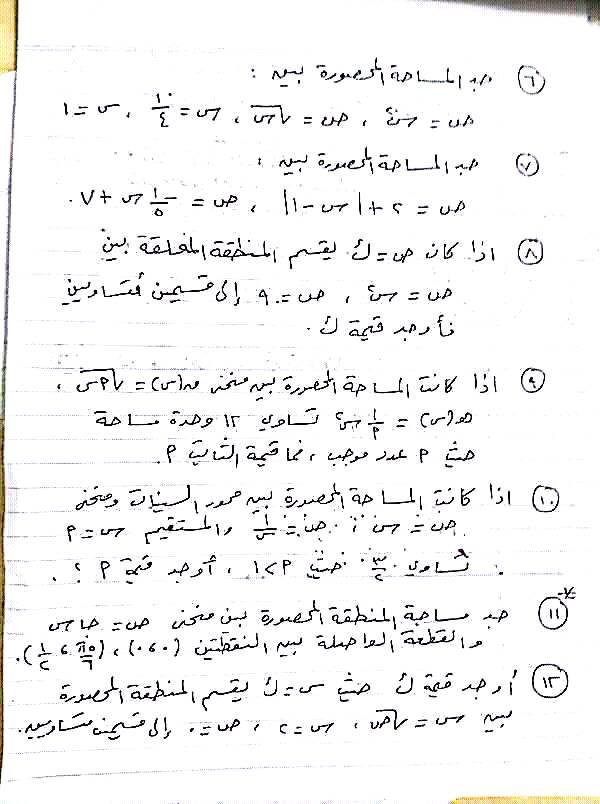 ٦) جد المساحة المحصورة بين :
ص = س٢ ، ص = √س ، س = ١/٤ ، س = ١
٧) جد المساحة المحصورة بين :
ص = ٢ + |س - ١| ، ص = ١/٥ س + ٧ .
٨) اذا كان ص = ك يقسم المنطقة المغلقة بين
ص = س٢ ، ص = ٩ إلى قسمين متساويين
فأوجد قيمة ك .
٩) اذا كانت المساحة المحصورة بين منحنى ق(س) = √٢س ،
هـ(س) = ١/٢ س٢ تساوي ١٢ وحدة مساحة
حيث ٢ عدد موجب ، فما قيمة الثابت ٢ .
١٠) اذا كانت المساحة المحصورة بين محور السينات ومنحنى
ص = س٢ ، ص = ١/س والمستقيم س = ٢
تساوي ٣/٢ حيث ٢ > ١ ، أوجد قيمة ٢ ؟ .
١١) جد مساحة المنطقة المحصورة بين منحنى ص = جاس
والقطعة الواصلة بين النقطتين (٠،٠) ، (٥π/٦ ، ١/٢) .
١٢) أوجد قيمة ك حيث س = ك يقسم المنطقة المحصورة
بين س = √ص ، س = ٢ ، ص = ٠ إلى قسمين متساويين .